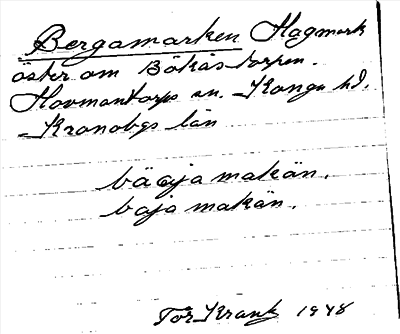 Bergamarken Hagmark
öster om Bökåstorpen.
Hovmantorps sn. Konga hd.
Kronobgs län
bäaja makän.
baja makän.
Tor Krantz 1948